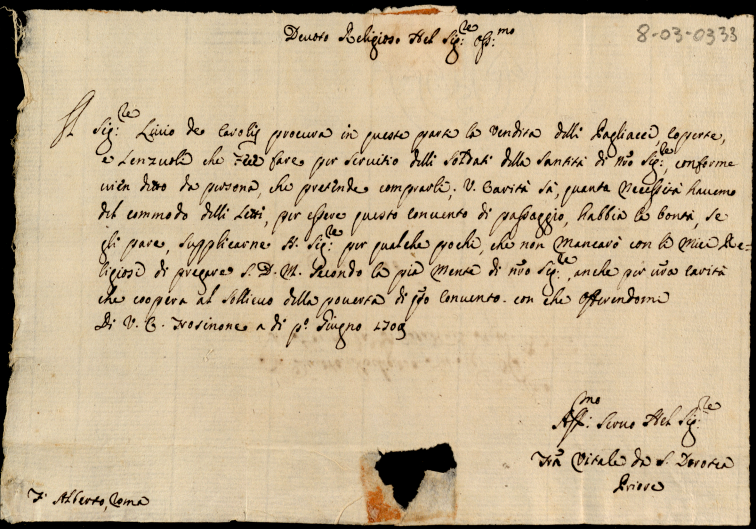 Devoto Religioso Nel Sig:re Oss:mo
8-03-0333
Il Sig:re Livio de Carolis procura in queste parte la vendita delli Pagliacci, Coperte,
e Lenzuoli che fare per servitio delli Soldati della Santità di Nro Sig:re, conforme
vien detto da persona, che pretende comprarli; V. Carità sà, quanta Necessità havemo
del commodo delli Letti, per essere questo convento di passaggio, habbia la bontà, se
gli pare, supplicarne Il Sig:re per qualche pochi, che non Mancarò con le Miei Re=
ligiosi di pregare S. D. M. secondo la pia Mente di Nro Sig:re, anche per vra carità
che coopera al Sollievo della povertà di qsto Convento. con che Offerendome
Di V. C. Frosinone a di po Giugno 1709
Aff:mo Servo Nel Sig:re
Fra Vitale da S. Dorotea
Priore
F. Alberto, Roma